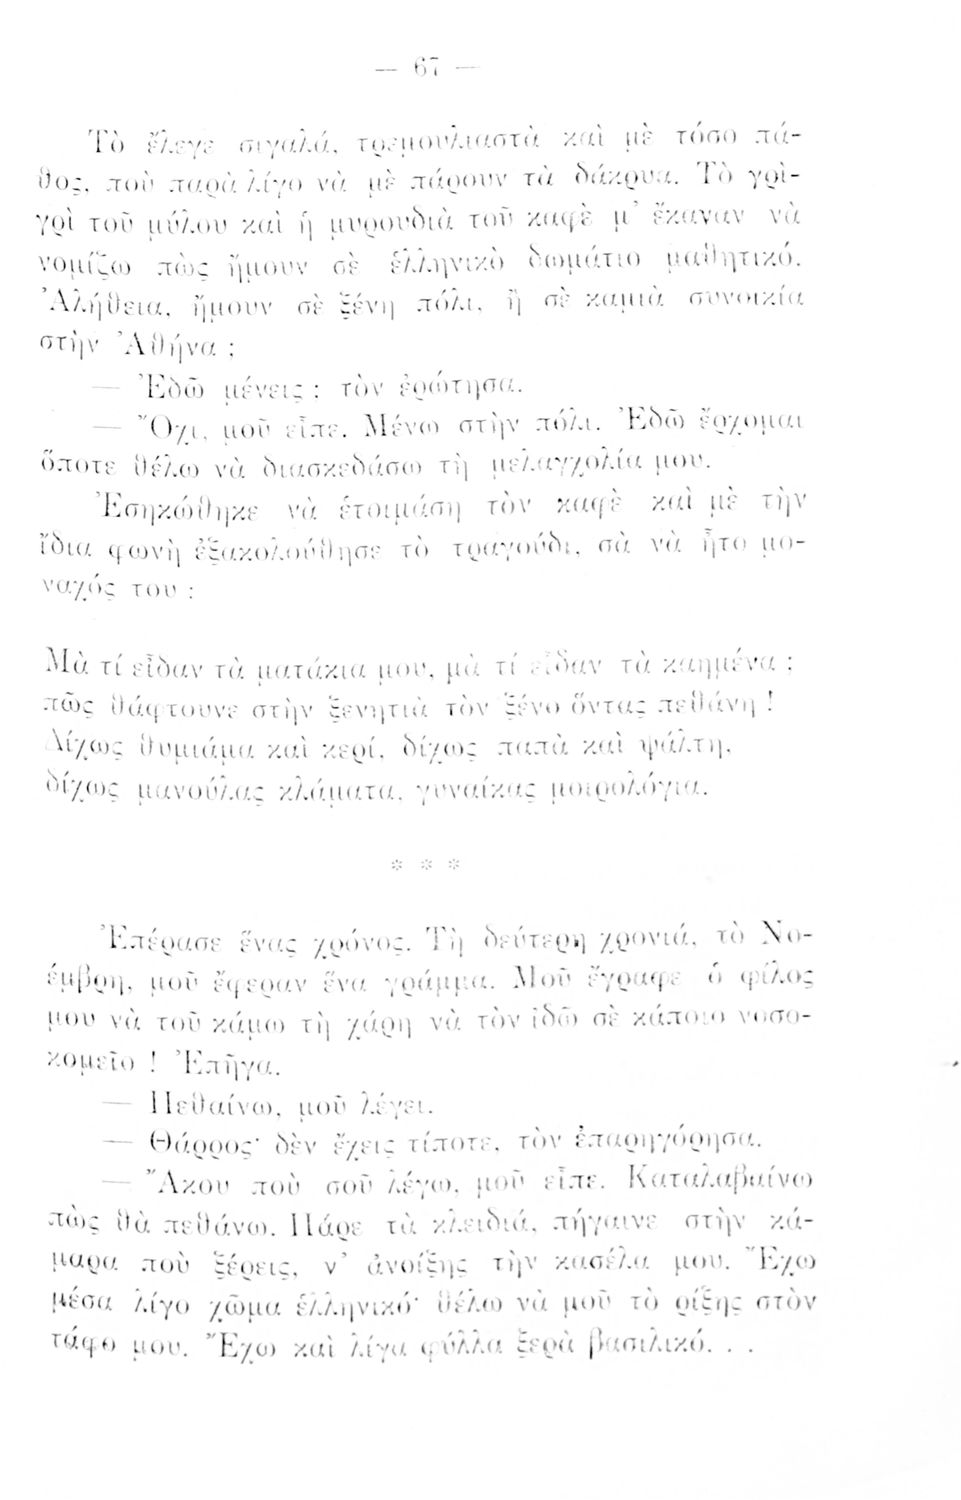 — 67 —
Τὸ ἔλεγε σιγαλά, τρεμουλιαστὰ καὶ μὲ τόσο πά-
θος, ποὺ παρὰ λίγο νὰ μὲ πάρουν τὰ δάκρυα. Τὸ γρὶ-
γρὶ τοῦ μύλου καὶ ἡ μυρουδιὰ τοῦ καφὲ μ᾿ ἔκαναν νὰ
νομίζω πὼς ἤμουν σὲ ἑλληνικὸ δωμάτιο μαθητικό.
Ἀλήθεια, ἤμουν σὲ ξένη πόλι, ἢ σὲ καμιὰ συνοικία
στὴν Ἀθήνα ;
— Ἐδῶ μένεις ; τὸν ἐρώτησα.
— Ὄχι, μοῦ εἶπε. Μένω στὴν πόλι. Ἐδῶ ἔρχομαι
ὅποτε θέλω νὰ διασκεδάσω τὴ μελαγχολία μου.
Ἐσηκώθηκε νὰ ἑτοιμάση τὸν καφὲ καὶ μὲ τὴν
ἴδια φωνὴ ἐξακολούθησε τὸ τραγούδι, σὰ νὰ ἦτο μο-
ναχός του :
Μὰ τί εἶδαν τὰ ματάκια μου, μὰ τί εἶδαν τὰ καημένα ;
πῶς θάφτουνε στὴν ξενητιὰ τὸν ξένο ὄντας πεθάνη !
Δίχως θυμιάμα καὶ κερί, δίχως παπὰ καὶ ψάλτη,
δίχως μανούλας κλάματα, γυναίκας μοιρολόγια.
* * *
Ἐπέρασε ἕνας χρόνος. Τὴ δεύτερη χρονιά, τὸ Νο-
έμβρη, μοῦ ἔφεραν ἕνα γράμμα. Μοῦ ἔγραφε ὁ φίλος
μου νὰ τοῦ κάμω τὴ χάρη νὰ τὸν ἰδῶ σὲ κάποιο νοσο-
κομεῖο ! Ἐπῆγα.
— Πεθαίνω, μοῦ λέγει.
— Θάρρος· δὲν ἔχεις τίποτε, τὸν ἐπαρηγόρησα.
— Ἄκου ποὺ σοῦ λέγω, μοῦ εἶπε. Καταλαβαίνω
πὼς θὰ πεθάνω. Πάρε τὰ κλειδιά, πήγαινε στὴν κά-
μαρα ποὺ ξέρεις, ν᾿ ἀνοίξης τὴν κασέλα μου. Ἔχω
μέσα λίγο χῶμα ἑλληνικό· θέλω νὰ μοῦ τὸ ρίξης στὸν
τάφο μου. Ἔχω καὶ λίγα φύλλα ξερὰ βασιλικό. . .